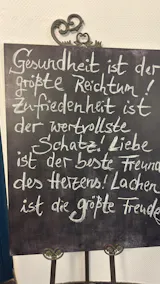 Gesundheit ist der
größte Reichtum!
Zufriedenheit ist
der wertvollste
Schatz! Liebe
ist der beste Freund
des Herzens! Lachen
ist die größte Freude